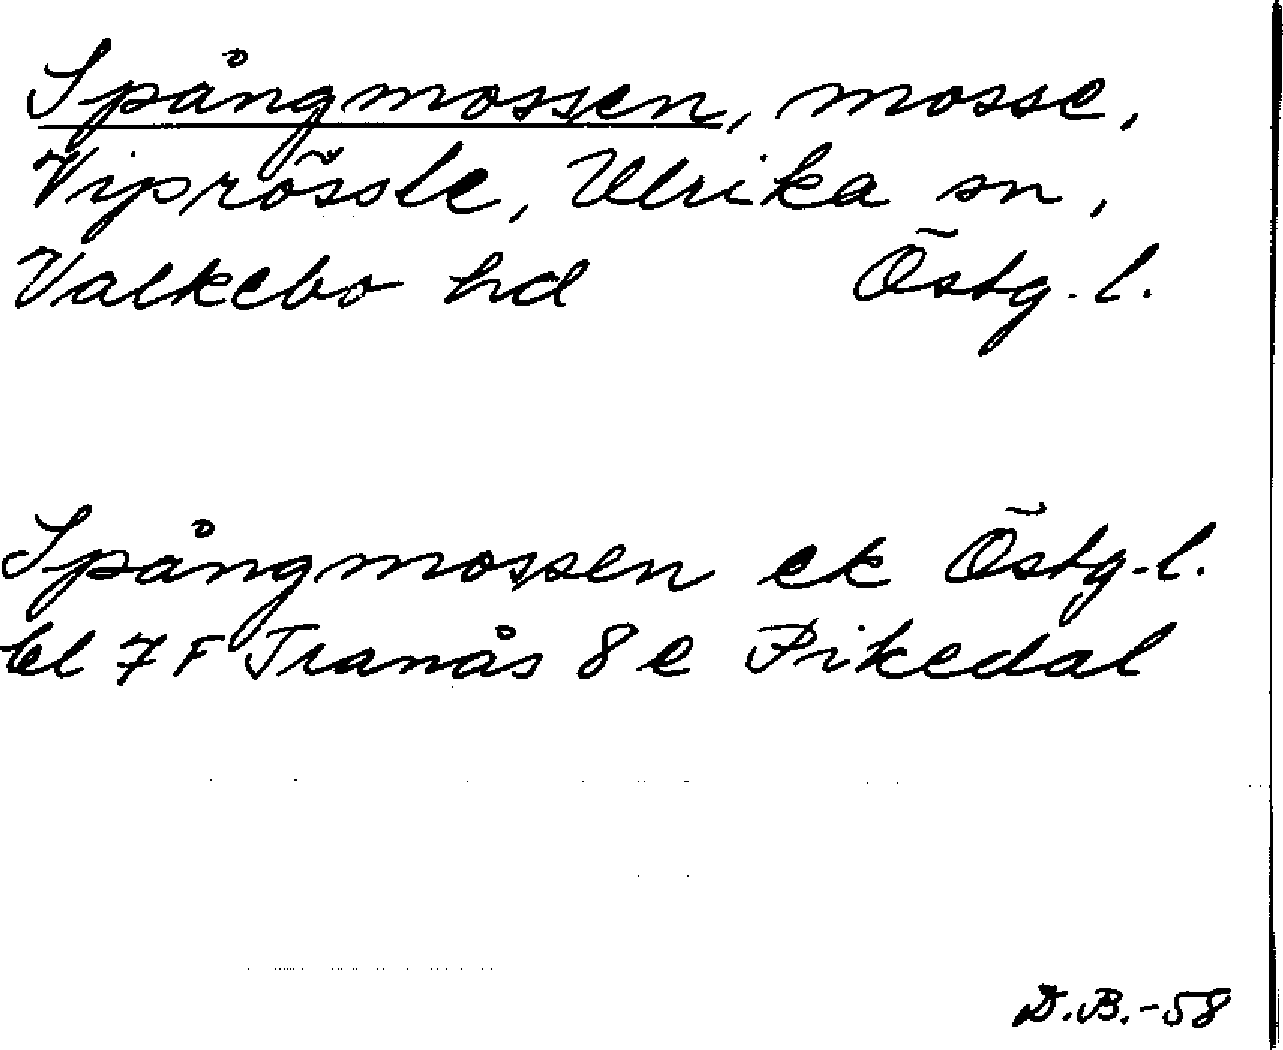 Spångmossen, mosse,
Viprössle, Ulrika sn,
Valkebo hd Östg. l.
Spångmossen ek Östg. l.
bl 7 F Tranås 8 e Pikedal
D.B.-58